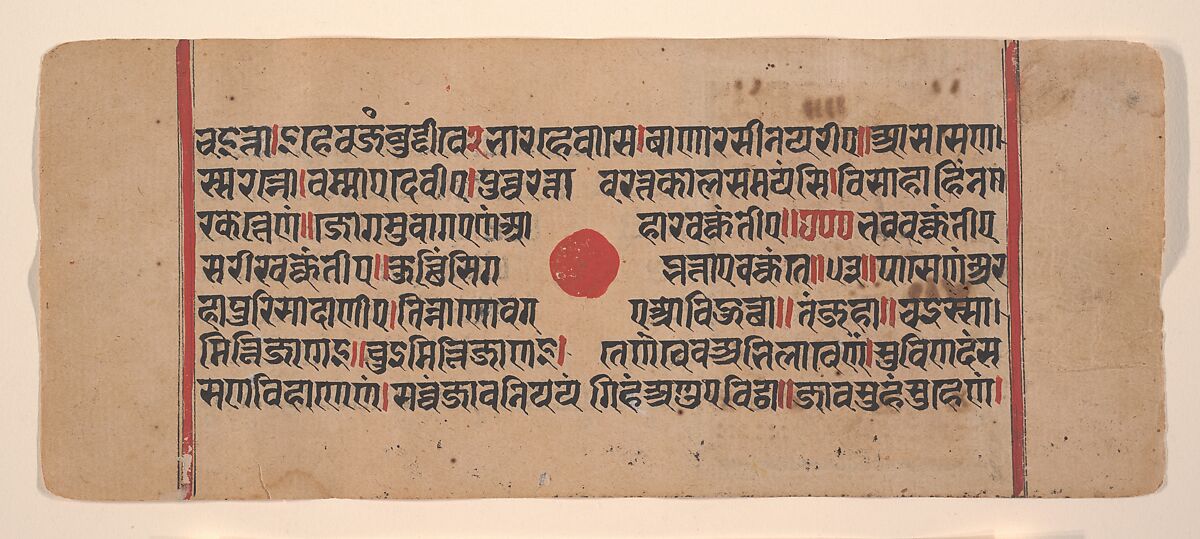 चइत्ता।इहेव जंबुद्दीवे२भारहे वासे।वाणारसीनयरीए॥आससेणा।
स्सरन्नो।वम्माए देवीए।पुव्वरत्ता वरत्तकालसमयंसि।विसाहाहिं नग
रकत्तेणं॥जोगमुवागएणंआ हारवक्कंतीए॥७०० भववक्कंतीए
सरीरवक्कंतीए॥कुच्छिंसिग ब्भत्ताएवक्कंते॥५३॥पासेणंअर
हापुरिसादाणीए।तिन्नाणोवग एआविऊत्था॥तंजहा॥चइस्सा।
मित्तिजाणइ॥चुएमित्तिजाणइ। तेणंचेवअभिलावेणं।सुविणदंस
सणविहाणेणं।सव्वंजावनिययं गिहंअणुपविट्ठा॥जावसुहंसुहेणं।